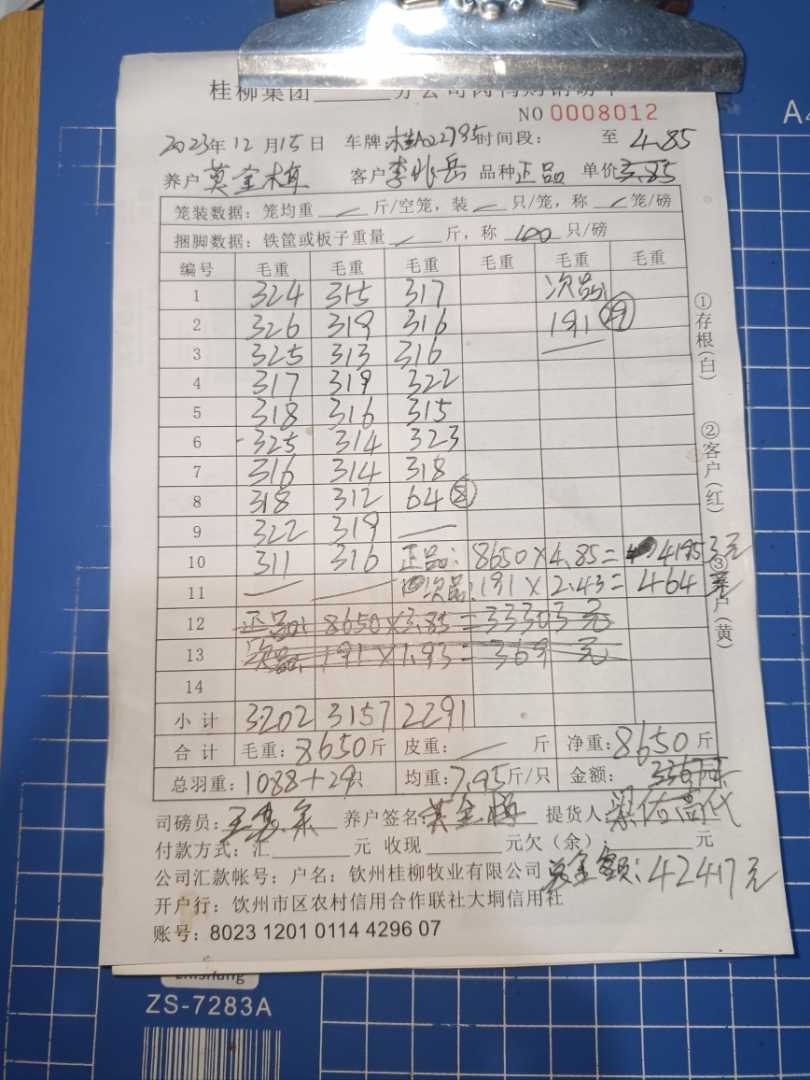 桂柳集团______分公司肉鸭购销磅单
NO 0008012
2023年12月15日 车牌:桂A02795 时间段: 至 4.85
养户 莫金梅 客户 李兆岳 品种 正品 单价 3.85
笼装数据:笼均重 / 斤/空笼,装 / 只/笼,称 / 笼/磅
捆脚数据:铁筐或板子重量 / 斤,称 100 只/磅
编号 毛重 毛重 毛重 毛重 毛重 毛重
1 324 315 317 次品:
2 326 319 316 191 29
3 325 313 316 —
4 317 319 322
5 318 316 315
6 325 314 323
7 316 314 318
8 318 312 64 8
9 322 319 —
10 311 316 正品: 8650×4.85= 41953元
11 — — 次品: 191×2.43= 464元
12 正品: 8650×3.85=33303元
13 次品: 191×1.93=369元
14
小计 3202 3157 2291
合计 毛重:8650斤 皮重: / 斤 净重:8650斤
总羽重:1088+29只 均重:7.95斤/只 金额:
司磅员: 养户签名 莫金梅 提货人:
付款方式:汇______元 收现______元欠(余)______元
公司汇款帐号:户名:钦州桂柳牧业有限公司 总金额:42417元
开户行:钦州市区农村信用合作联社大垌信用社
账号:8023 1201 0114 4296 07
①存根(白)
②客户(红)
③养户(黄)
ZS-7283A
A4